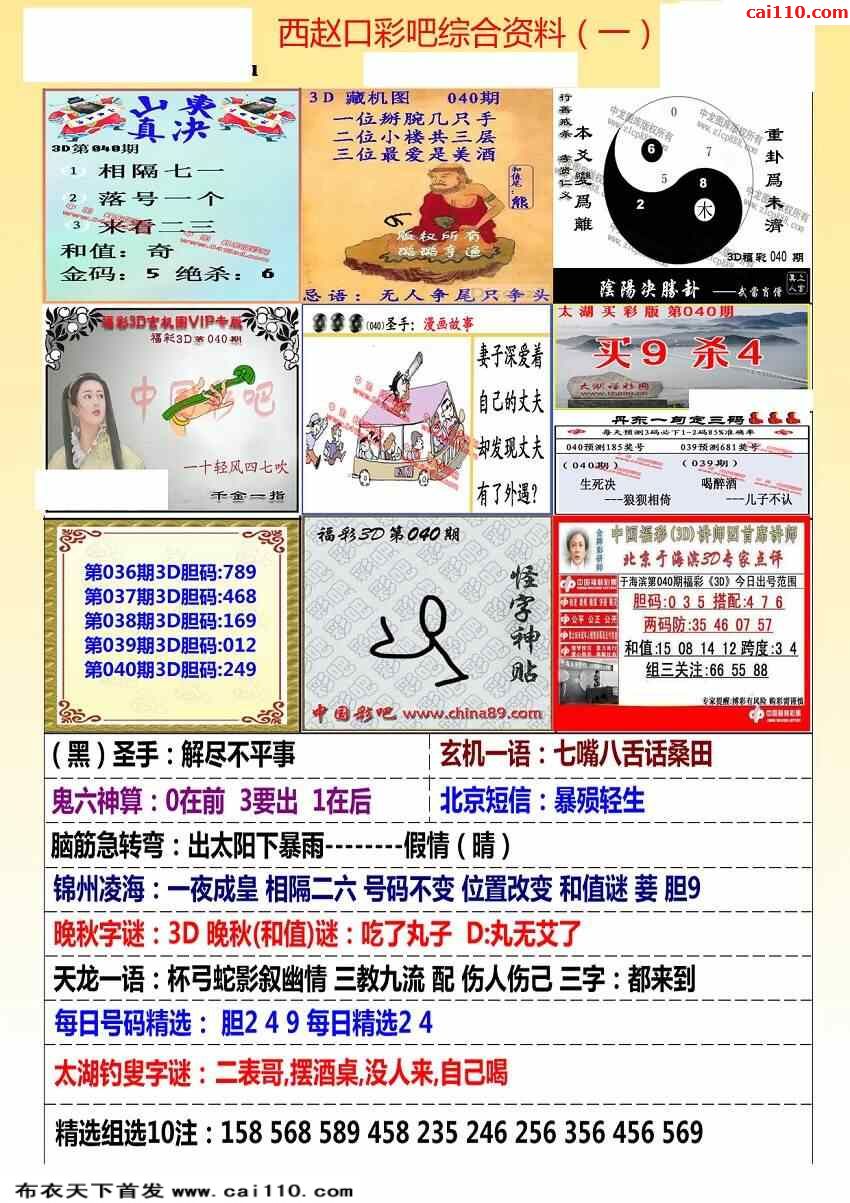 cai110.com
西赵口彩吧综合资料（一）
山東
真决
3D第040期
1 相隔七一
2 落号一个
3 来看二三
和值：奇
金码：5 绝杀：6
3D 藏机图 040期
一位掰腕几只手
二位小楼共三层
三位最爱是美酒
和值尾：熊
版权所有
忌语：无人争尾只争头
行善戒杀 孝贤仁义
本爻變爲離
重卦爲未濟
中龙图库版权所有
www.zlcp888.cn
0
6
7
5
8
2
木
3D福彩 040 期
陰陽决勝卦 ——武當肖僧
福彩3D玄机图VIP专版
福彩3D第040期
中国彩吧
一十轻风四七吹
千金一指
(040)圣手：漫画故事
妻子深爱着
自己的丈夫
却发现丈夫
有了外遇？
太湖买彩版 第040期
买9 杀4
太湖福彩网
丹东一句定三码
每天预测3码必下1-2码85%准确率
040预测185奖号 039预测681奖号
(040期) (039期)
生死决 喝醉酒
---狼狈相倚 ---儿子不认
第036期3D胆码:789
第037期3D胆码:468
第038期3D胆码:169
第039期3D胆码:012
第040期3D胆码:249
福彩3D第040期
怪字神贴
中国彩吧 www.china89.com
金牌彩研师
中国福彩(3D)讲师团首席讲师
北京于海滨3D专家点评
中国福利彩票
于海滨第040期福彩《3D》今日出号范围
胆码:0 3 5 搭配:4 7 6
公平 公正 公开
两码防:35 46 07 57
和值:15 08 14 12 跨度:3 4
组三关注:66 55 88
专家提醒:博彩有风险 购彩需谨慎
中国福利彩票
（黑）圣手：解尽不平事
玄机一语：七嘴八舌话桑田
鬼六神算：0在前 3要出 1在后
北京短信：暴殒轻生
脑筋急转弯：出太阳下暴雨--------假情（晴）
锦州凌海：一夜成皇 相隔二六 号码不变 位置改变 和值谜 萎 胆9
晚秋字谜：3D 晚秋(和值)谜：吃了丸子 D:丸无艾了
天龙一语：杯弓蛇影叙幽情 三教九流 配 伤人伤己 三字：都来到
每日号码精选： 胆2 4 9 每日精选2 4
太湖钓叟字谜：二表哥,摆酒桌,没人来,自己喝
精选组选10注：158 568 589 458 235 246 256 356 456 569
布衣天下首发 www.cai110.com